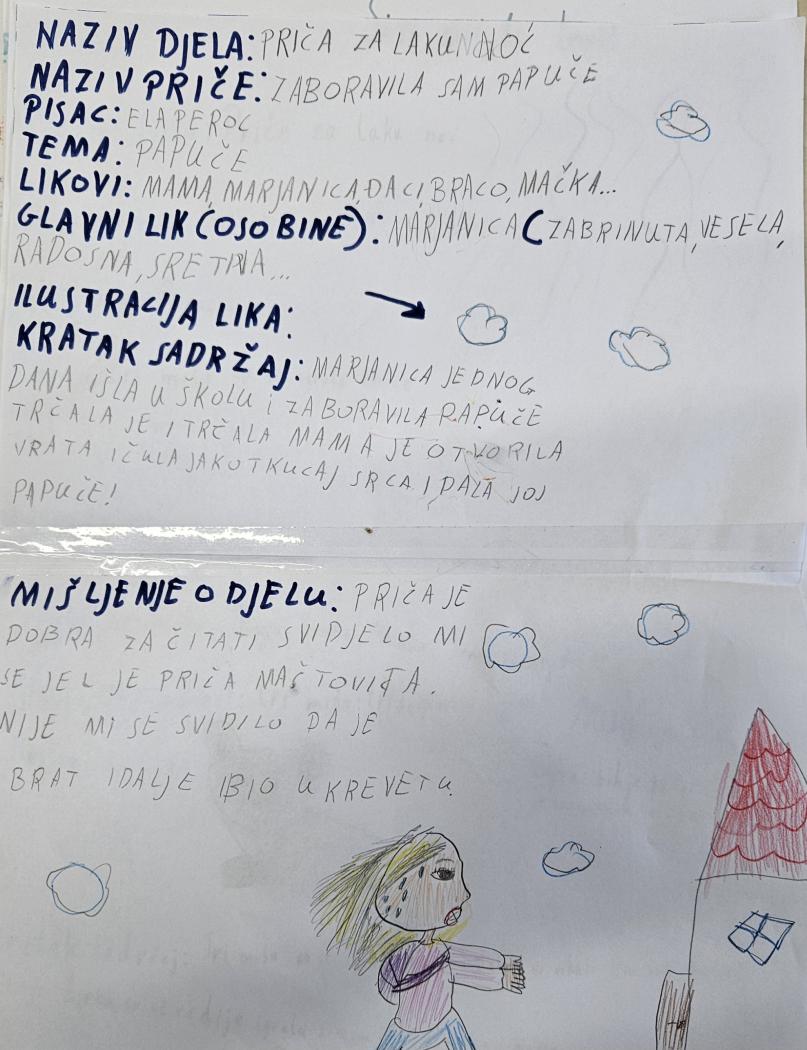 NAZIV DJELA: PRIČA ZA LAKU NOĆ
NAZIV PRIČE: ZABORAVILA SAM PAPUČE
PISAC: ELA PEROC
TEMA: PAPUČE
LIKOVI: MAMA, MARJANICA, ĐACI, BRACO, MAČKA...
GLAVNI LIK (OSOBINE): MARJANICA (ZABRINUTA, VESELA,
RADOSNA, SRETNA...
ILUSTRACIJA LIKA:
KRATAK SADRŽAJ: MARJANICA JEDNOG
DANA IŠLA U ŠKOLU I ZABORAVILA PAPUČE
TRČALA JE I TRČALA MAMA JE OTVORILA
VRATA I ČULA JAK OTKUCAJ SRCA I DALA JOJ
PAPUČE!
MIŠLJENJE O DJELU: PRIČA JE
DOBRA ZA ČITATI SVIDJELO MI
SE JEL JE PRIČA MAŠTOVITA.
NIJE MI SE SVIDILO DA JE
BRAT I DALJE BIO U KREVETU.